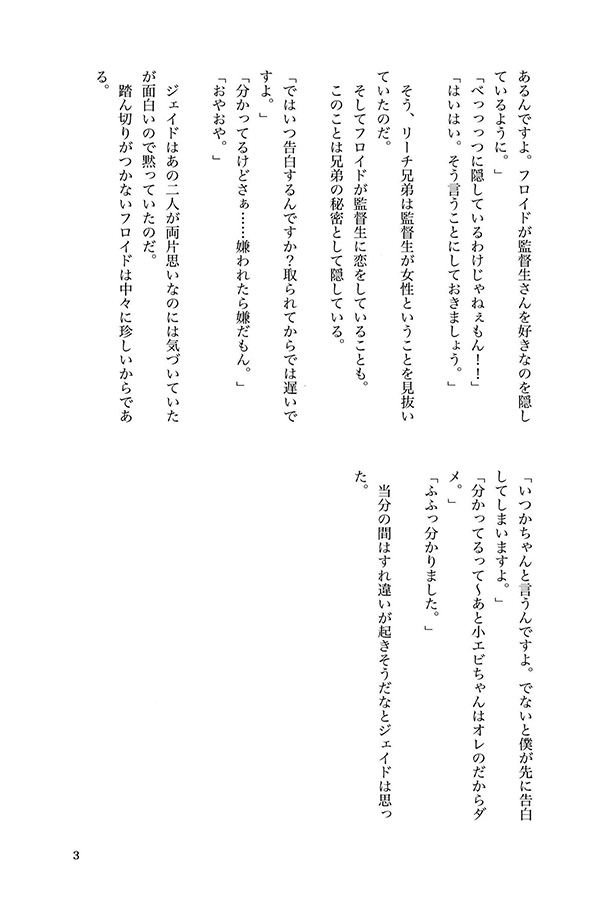 あるんですよ。フロイドが監督生さんを好きなのを隠し
ているように。」
「べっっっつに隠しているわけじゃねぇもん！！」
「はいはい。そう言うことにしておきましょう。」
そう、リーチ兄弟は監督生が女性ということを見抜い
ていたのだ。
そしてフロイドが監督生に恋をしていることも。
このことは兄弟の秘密として隠している。
「ではいつ告白するんですか？取られてからでは遅いで
すよ。」
「分かってるけどさぁ……嫌われたら嫌だもん。」
「おやおや。」
ジェイドはあの二人が両片思いなのには気づいていた
が面白いので黙っていたのだ。
踏ん切りがつかないフロイドは中々に珍しいからであ
る。
「いつかちゃんと言うんですよ。でないと僕が先に告白
してしまいますよ。」
「分かってるって～あと小エビちゃんはオレのだからダ
メ。」
「ふふっ分かりました。」
当分の間はすれ違いが起きそうだなとジェイドは思っ
た。
3